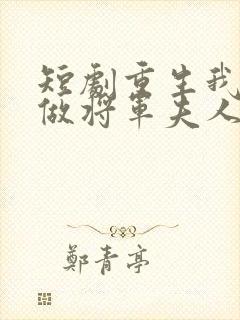 短劇重生我
做将軍夫人
鄭青亭